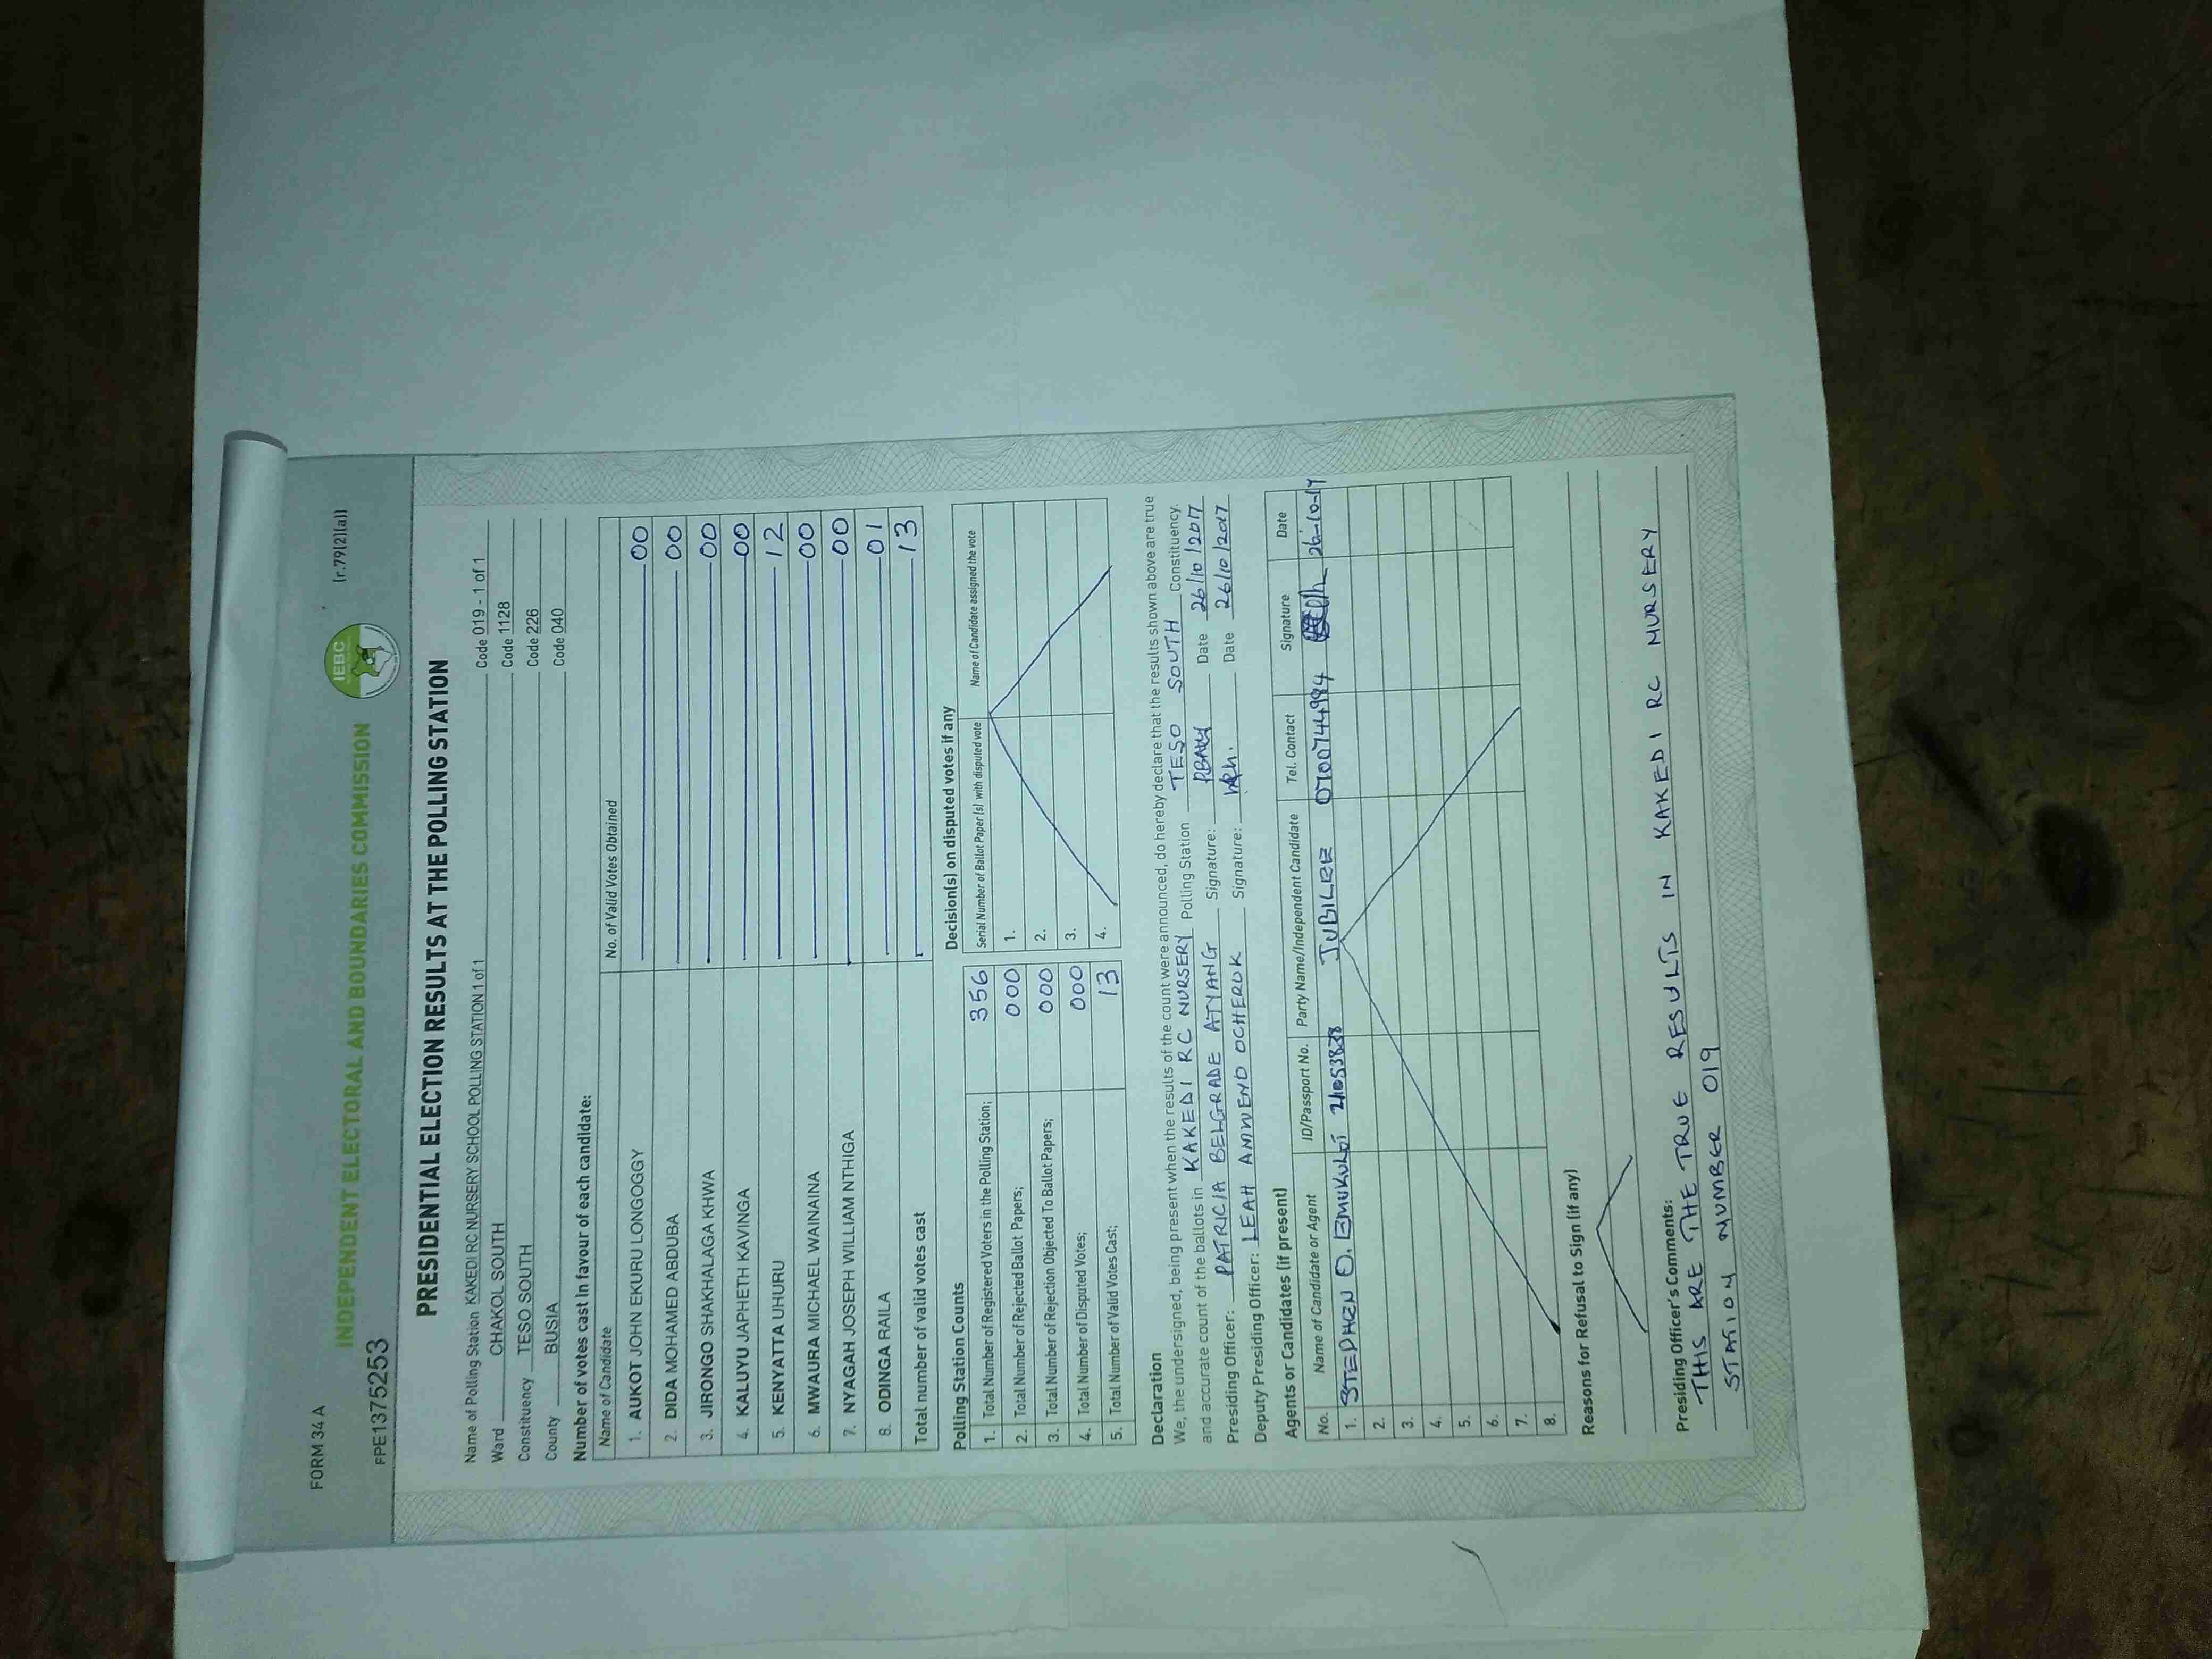 FORM 34 A
(r.79(2)(a))
INDEPENDENT ELECTORAL AND BOUNDARIES COMMISSION
IEBC
FPE1375253
PRESIDENTIAL ELECTION RESULTS AT THE POLLING STATION
Name of Polling Station KAKEDI RC NURSERY SCHOOL POLLING STATION 1 of 1 Code 019 - 1 of 1
Ward CHAKOL SOUTH Code 1128
Constituency TESO SOUTH Code 226
County BUSIA Code 040
Number of votes cast in favour of each candidate:
Name of Candidate No. of Valid Votes Obtained
1. AUKOT JOHN EKURU LONGOGGY 00
2. DIDA MOHAMED ABDUBA 00
3. JIRONGO SHAKHALAGA KHWA 00
4. KALUYU JAPHETH KAVINGA 00
5. KENYATTA UHURU 12
6. MWAURA MICHAEL WAINAINA 00
7. NYAGAH JOSEPH WILLIAM NTHIGA 00
8. ODINGA RAILA 01
Total number of valid votes cast 13
Polling Station Counts
1. Total Number of Registered Voters in the Polling Station; 356
2. Total Number of Rejected Ballot Papers; 000
3. Total Number of Rejection Objected To Ballot Papers; 000
4. Total Number of Disputed Votes; 000
5. Total Number of Valid Votes Cast; 13
Decision(s) on disputed votes if any
Serial Number of Ballot Paper (s) with disputed vote Name of Candidate assigned the vote
1.
2.
3.
4.
Declaration
We, the undersigned, being present when the results of the count were announced, do hereby declare that the results shown above are true
and accurate count of the ballots in KAKEDI RC NURSERY Polling Station TESO SOUTH Constituency.
Presiding Officer: PATRICIA BELGRADE ATYANG Signature: Date 26/10/2017
Deputy Presiding Officer: LEAH AMWENO OCHERUK Signature: Date 26/10/2017
Agents or Candidates (if present)
No. Name of Candidate or Agent ID/Passport No. Party Name/Independent Candidate Tel. Contact Signature Date
1. STEPHEN O. EMUKULOI JUBILEE 0700744984 26-10-17
2.
3.
4.
5.
6.
7.
8.
Reasons for Refusal to Sign (if any)
Presiding Officer's Comments:
THIS ARE THE TRUE RESULTS IN KAKEDI RC NURSERY
STATION NUMBER 019